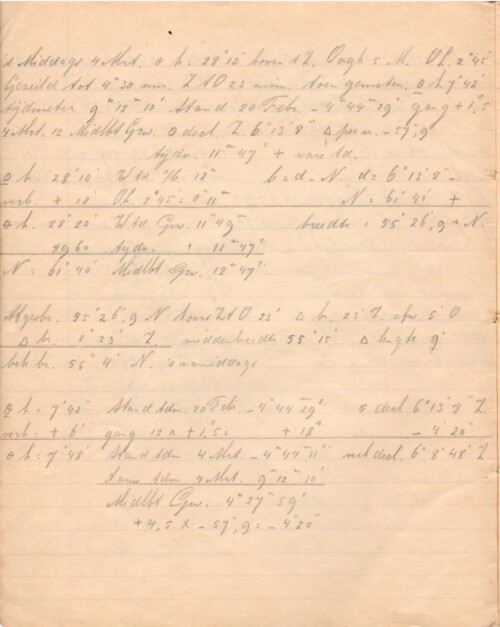 's Middags 4 Mrt. ⊙ h = 28° 10' boven t Z. Oogh 5 M. OL. 2° 45'
Gezeild tot 4 u 30 nm. Z t O 23 mijn. toen gemeten. ⊙ h 7° 42'
tijdmeter 9u 12m 10s Stand 20 Febr. - 4u 44m 29s gang + 1,s5
4 Mrt. 12 Midlbt Grw. ⊙ decl. Z. 6° 13' 8" Δ per u. - 57",9
tijdv. 11m 47s + ware td.
⊙ h. 28° 10' Wtd. 12 b = d - N. d = 6° 13' 8" -
verb + 10' OL. 2° 45' = 0u 11m N = 61° 40' +
⊙ h. 28° 20' Wtd Grw. 11u 49m breedte = 55° 26',9 N.
8960 tijdv. + 11m 47s
N = 61° 40' Midlbt Grw. 12u 47s
Afgvbr. 55° 26',9 N koers Z t O 23' Δ br. 23' Z. afw. 5' O
Δ br. 0° 23' Z. middenbreedte 55° 15' Δ lengte 9'
bek br. 55° 4' N. 's namiddags
⊙ h = 7° 42' Stand tdm. 20 Feb. - 4u 44m 29s ⊙ decl 6° 13' 8" Z
verb = + 6' gang 12 x + 1,s5 = + 18s - 4' 20"
⊙ h = 7° 48' Stand tdm 4 Mrt. - 4u 44m 11s verb decl. 6° 8' 48" Z
tdm 4 Mrt. 9u 12m 10s
Midlbt Grw. 4u 27m 59s
+ 4,5 x - 57",9 = - 4' 20"